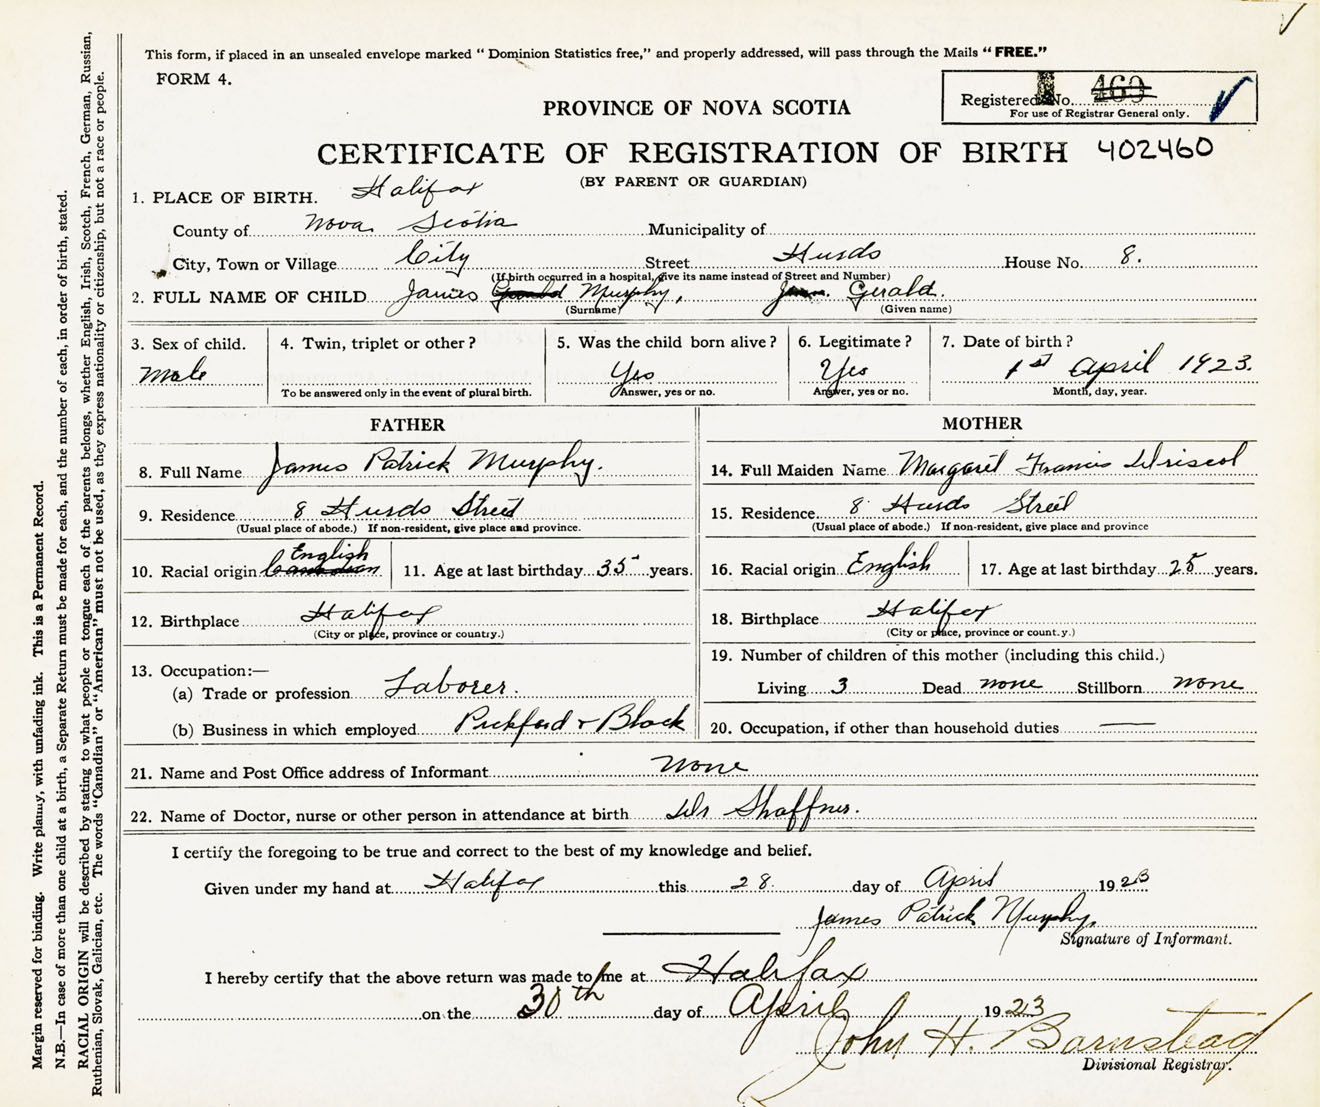 This form, if placed in an unsealed envelope marked “ Dominion Statistics free,” and properly addressed, will pass through the Mails “ FREE.”
FORM 4.
Registered No. 460
For use of Registrar General only.
PROVINCE OF NOVA SCOTIA
CERTIFICATE OF REGISTRATION OF BIRTH 402460
(BY PARENT OR GUARDIAN)
1. PLACE OF BIRTH. Halifax
County of Nova Scotia Municipality of
City, Town or Village City Street Hurds House No. 8.
(If birth occurred in a hospital, give its name instead of Street and Number)
2. FULL NAME OF CHILD James Gerald Murphy, Gerald.
(Surname) (Given name)
3. Sex of child. 4. Twin, triplet or other ? 5. Was the child born alive ? 6. Legitimate ? 7. Date of birth ?
Male Yes Yes 1st April 1923.
To be answered only in the event of plural birth. Answer, yes or no. Answer, yes or no. Month, day, year.
FATHER
8. Full Name James Patrick Murphy.
9. Residence 8 Hurds Street
(Usual place of abode.) If non-resident, give place and province.
10. Racial origin Canadian English 11. Age at last birthday 35 years.
12. Birthplace Halifax
(City or place, province or country.)
13. Occupation:—
(a) Trade or profession Laborer.
(b) Business in which employed Pickford & Black
MOTHER
14. Full Maiden Name Margaret Francis Driscol
15. Residence 8 Hurds Street
(Usual place of abode.) If non-resident, give place and province
16. Racial origin English 17. Age at last birthday 25 years.
18. Birthplace Halifax
(City or place, province or count.y.)
19. Number of children of this mother (including this child.)
Living 3 Dead none Stillborn none
20. Occupation, if other than household duties ——
21. Name and Post Office address of Informant none
22. Name of Doctor, nurse or other person in attendance at birth Dr Shaffner.
I certify the foregoing to be true and correct to the best of my knowledge and belief.
Given under my hand at Halifax this 28. day of April 1923
James Patrick Murphy,
Signature of Informant.
I hereby certify that the above return was made to me at Halifax
on the 30th day of April 1923
John H. Barnstead
Divisional Registrar.
Margin reserved for binding. Write plainly, with unfading ink. This is a Permanent Record.
N.B.—In case of more than one child at a birth, a Separate Return must be made for each, and the number of each, in order of birth, stated.
RACIAL ORIGIN will be described by stating to what people or tongue each of the parents belongs, whether English, Irish, Scotch, French, German, Russian,
Ruthenian, Slovak, Galician, etc. The words “Canadian” or “American” must not be used, as they express nationality or citizenship, but not a race or people.